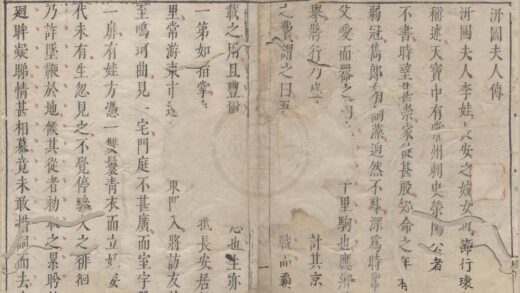 汧國夫人傳
汧國夫人李娃長安之娼女也節行瑰
稱述天寶中有常州刺史滎陽公者
不書時望甚崇家徒甚殷知命之年有
弱冠雋郎有詞藻逈然不群深為時輩
父愛而器之曰 千里駒也應鄉
舉將行乃盛 計其京
之費謂之曰吾 戰而霸
載之用且豐爾 志也生亦
一第如指掌 抵長安居
里常游東市還 東門入將訪友
至鳴珂曲見一宅門庭不甚廣而室宇
一扉有娃方憑一雙鬟青衣而立妖姿
代未有生忽見之不覺停驂久之徘徊
乃詐墜鞭於地候其從者勑取之累眄
廻眸凝睇情甚相慕竟未敢措詞而去